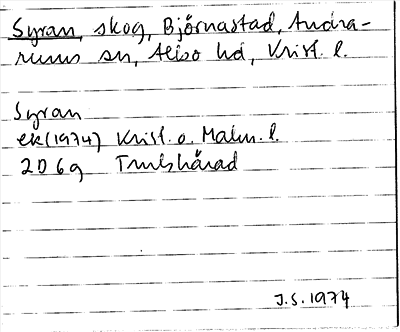 Syran, skog, Björnastad, Andra-
rums sn, Albo hd, Krist. l.
Syran
ek(1974) Krist. o. Malm. l.
2D 6g Trulshärad
J.S. 1974